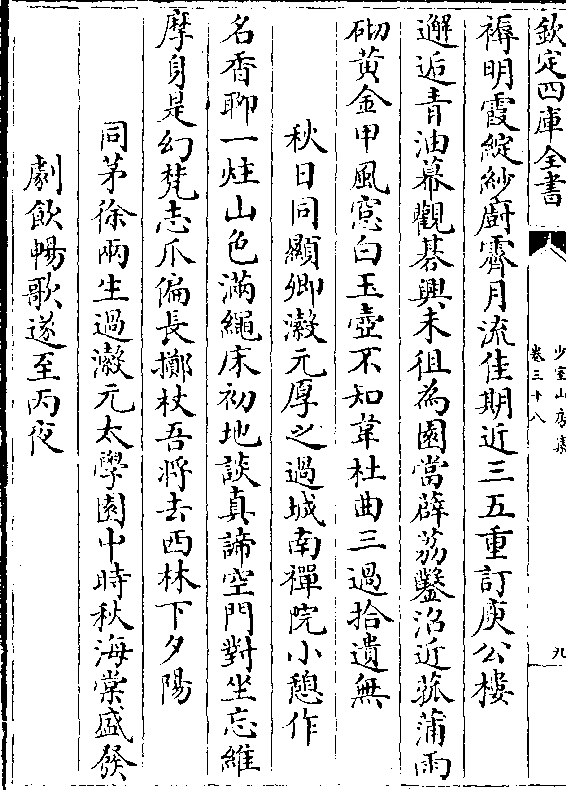 欽定四庫全書
少室山房集
卷三十八
九
褥明霞綻紗厨霽月流佳期近三五重訂庾公樓
邂逅青油幕觀碁興未徂為園當薜荔鑿沼近菰蒲雨
砌黄金甲風窓白玉壺不知韋杜曲三過拾遺無
秋日同顯卿瀔元厚之過城南禪院小憩作
名香聊一炷山色滿繩床初地談真諦空門對坐忘維
摩身是幻梵志爪偏長擲杖吾將去西林下夕陽
同茅徐兩生過瀔元太學園中時秋海棠盛發
劇飲暢歌遂至丙夜